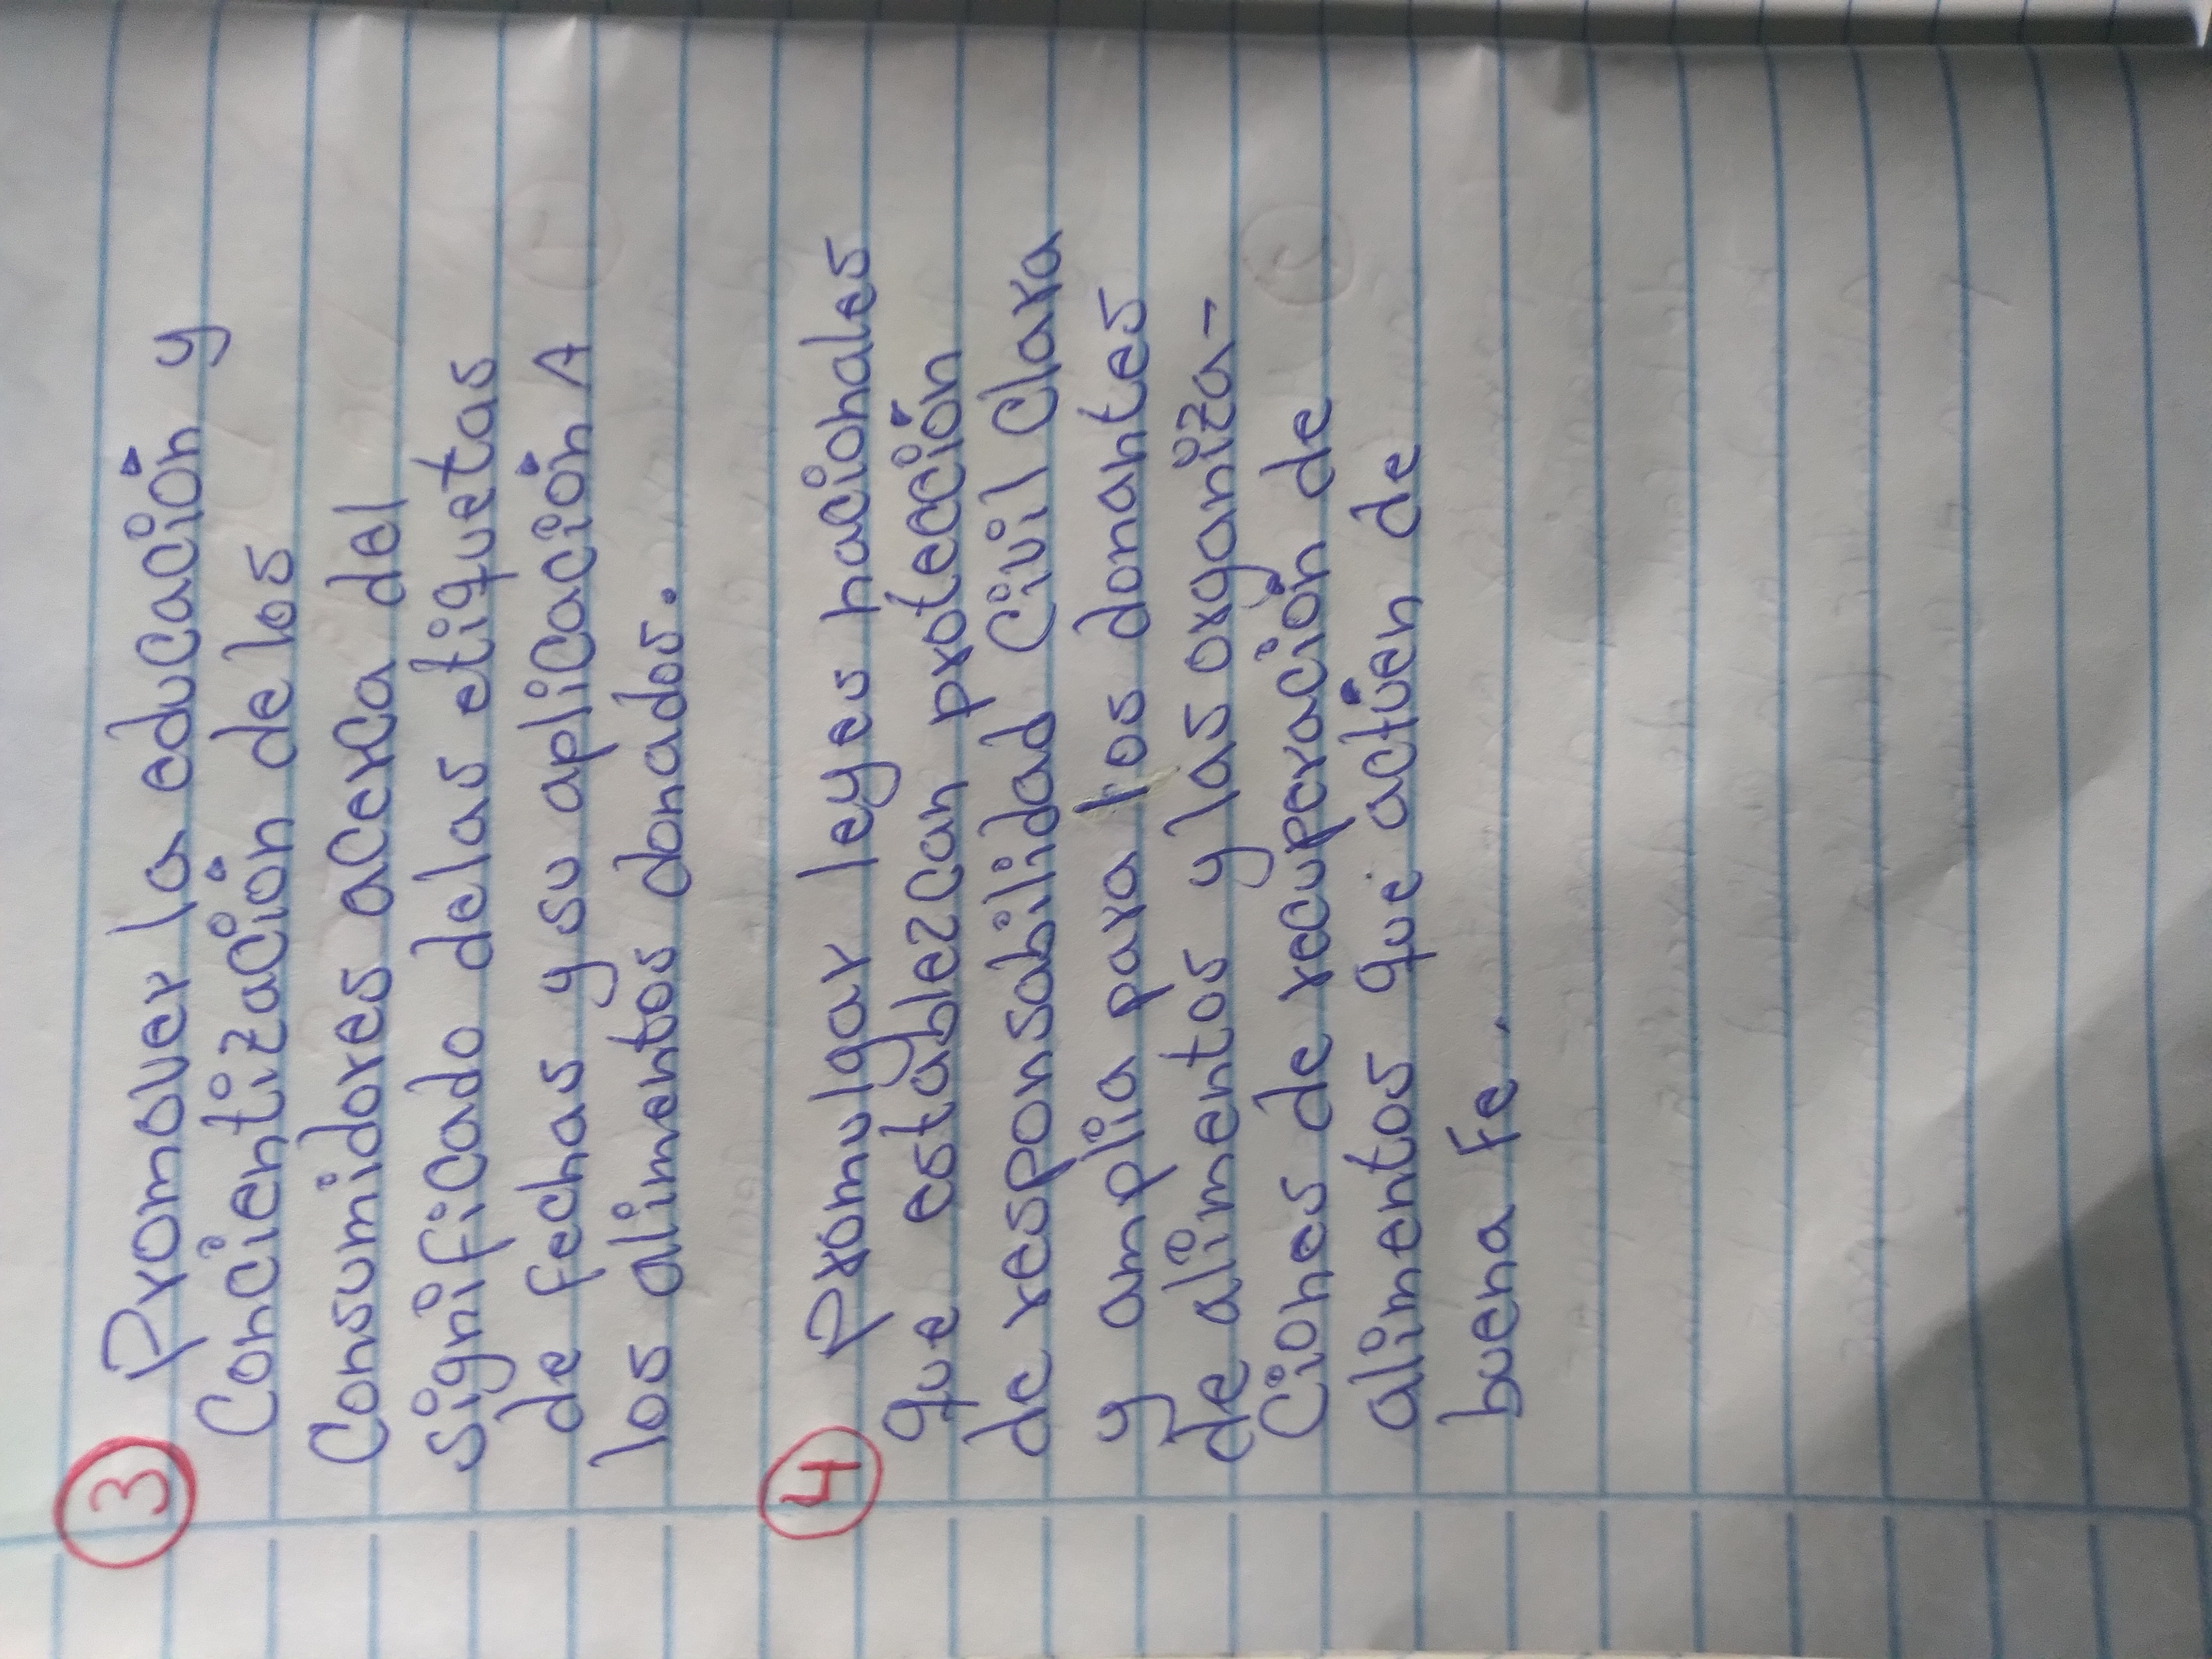 ③ Promover la educación y
Concientización de los
Consumidores acerca del
significado delas etiquetas
de fechas y su aplicación A
los alimentos donados.
④ Promulgar leyes nacionales
que establezcan protección
de responsabilidad Civil Clara
y amplia para los donantes
de alimentos y las organiza-
Ciones de recuperación de
alimentos que actúen de
buena Fe.